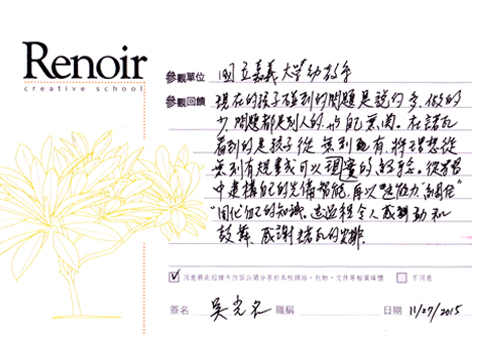 Renoir
creative school
參觀單位 國立嘉義大學幼教系
參觀回饋 現在的孩子碰到的問題是說的多、做的
少、問題都是別人的、與自己無關。在諾瓦
看到的是孩子從無到有,將理想從
無到有規畫成可以 的經驗。從學習
中建構自己的先備智能,再以 能力
固化自己的知識。這過程令人感到感動和
鼓舞、感謝諾瓦的安排。
同意將此回饋卡內容公開分享於本校網站、刊物、文件等相關媒體 不同意
簽名 吳光名 職稱 日期 11/27/2015